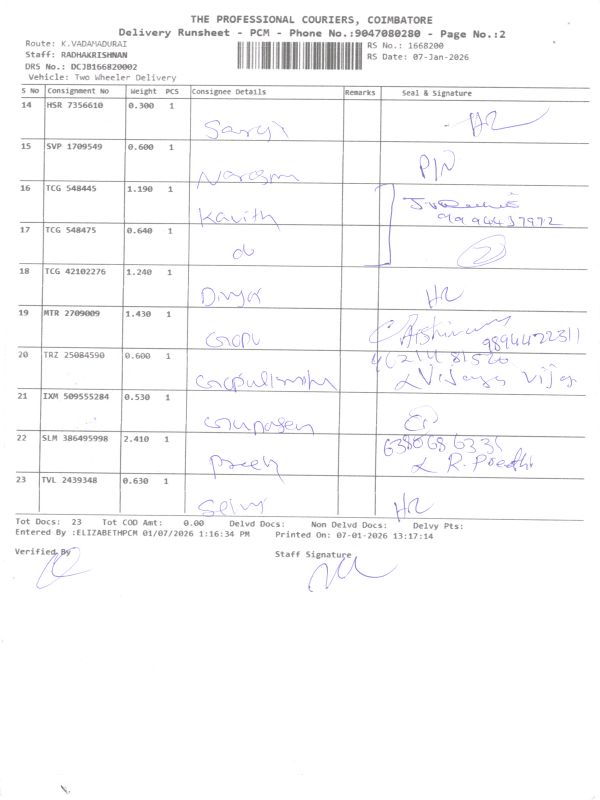 THE PROFESSIONAL COURIERS, COIMBATORE
Delivery Runsheet - PCM - Phone No.:9047080280 - Page No.:2
Route: K.VADAMADURAI
Staff: RADHAKRISHNAN
DRS No.: DCJB166820002
Vehicle: Two Wheeler Delivery
RS No.: 1668200
RS Date: 07-Jan-2026
S No Consignment No Weight PCS Consignee Details Remarks Seal & Signature
14 HSR 7356610 0.300 1
15 SVP 1709549 0.600 1
P/N
16 TCG 548445 1.190 1
Kavith
9994437972
17 TCG 548475 0.640 1
do
18 TCG 42102276 1.240 1
Divya
19 MTR 2709009 1.430 1
Gopu
9894422311
20 TRZ 25084590 0.600 1
Vijaya Vijay
21 IXM 509555284 0.530 1
22 SLM 386495998 2.410 1
Preeh
R. Preethi
23 TVL 2439348 0.630 1
Selvi
Tot Docs: 23 Tot COD Amt: 0.00 Delvd Docs: Non Delvd Docs: Delvy Pts:
Entered By :ELIZABETHPCM 01/07/2026 1:16:34 PM Printed On: 07-01-2026 13:17:14
Verified By
Staff Signature